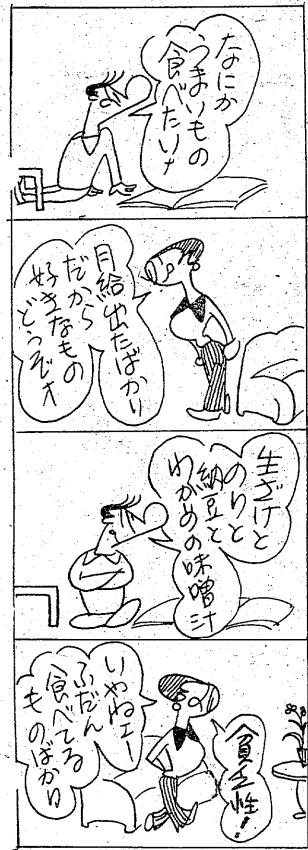 なにか
うまいもの
食べたいナ
月給出たばかり
だから
好きなもの
どうぞオ
生ざけと
のりと
納豆と
わかめの味噌汁
貧乏性!
いやねェー
ふだん
食べてる
ものばかり